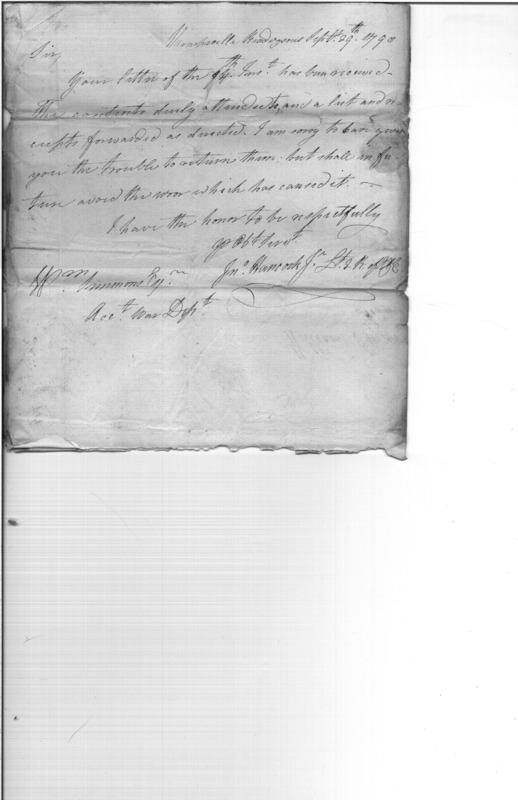 Rendezvous Sept. 29th. 1798
Sir,
Your letter of the Inst. has been received.
The contents duly attended to, and a list and re
ceipts forwarded as directed. I am sorry to have given
you the trouble to return them. but shall in fu-
ture avoid the error which has caused it. —
I have the honor to be respectfully
Yr Obt Servt.
Wm Simmons Esqr. Jno. Hancock Jr. Lt.
Acct. War Dept.